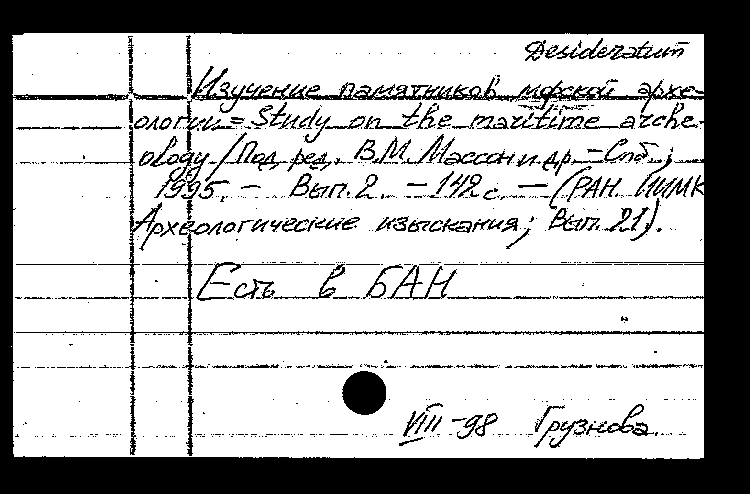 Desideratum
Изучение памятников морской архе-
ологии = Study on the maritime arche-
ology / Под ред. В.М. Массон и др. - Спб.;
1995. - Вып. 2. - 142 с. - (РАН. ИИМК
Археологические изыскания; Вып. 21).
Есть в БАН
VIII-98 Грузнова